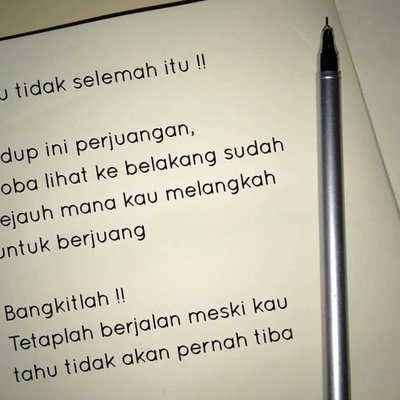 u tidak selemah itu !!
dup ini perjuangan,
oba lihat ke belakang sudah
ejauh mana kau melangkah
untuk berjuang
Bangkitlah !!
Tetaplah berjalan meski kau
tahu tidak akan pernah tiba